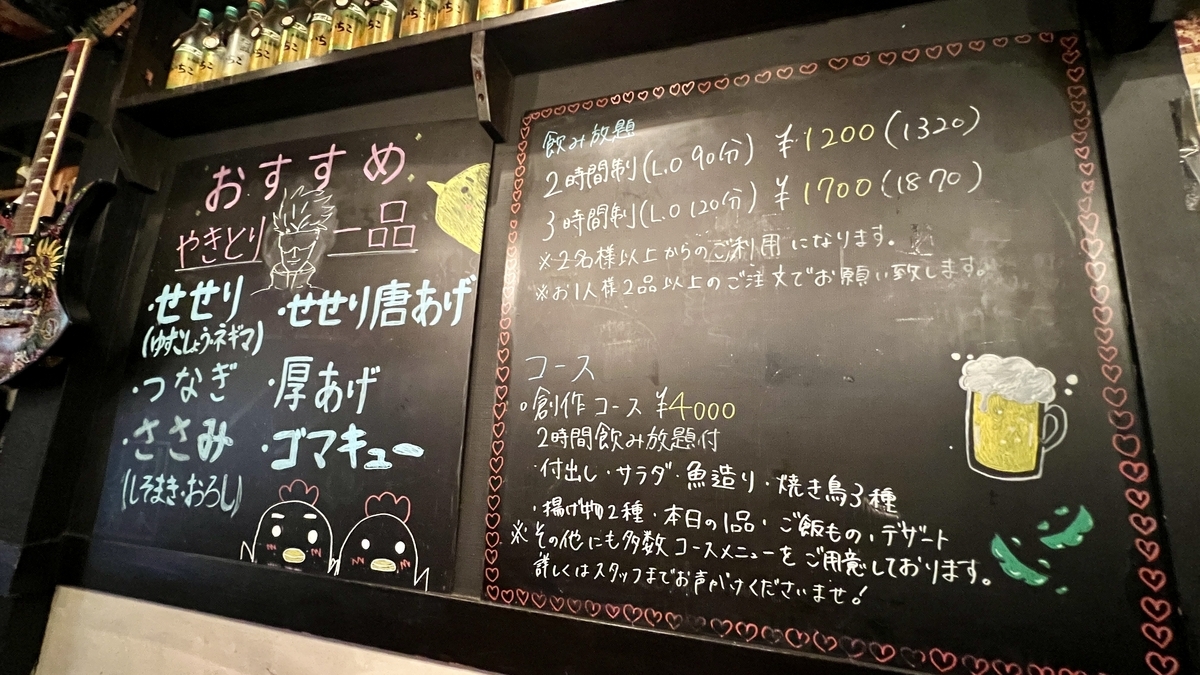 おすすめ
やきとり一品
・せせり
(ゆずこしょう・ネギマ)
・つなぎ
・ささみ
(しそまき・おろし)
・せせり唐あげ
・厚あげ
・ゴマキュー
飲み放題
2時間制(L.O 90分) ¥1200(1320)
3時間制(L.O 120分) ¥1700(1870)
※2名様以上からのご利用になります。
※お1人様2品以上のご注文でお願い致します。
コース
○創作コース ¥4000
2時間飲み放題付
・付出し・サラダ・魚造り・焼き鳥3種
・揚げ物2種・本日の1品・ご飯もの・デザート
※その他にも多数コースメニューをご用意しております。
詳しくはスタッフまでお声がけくださいませ!
いいちこ